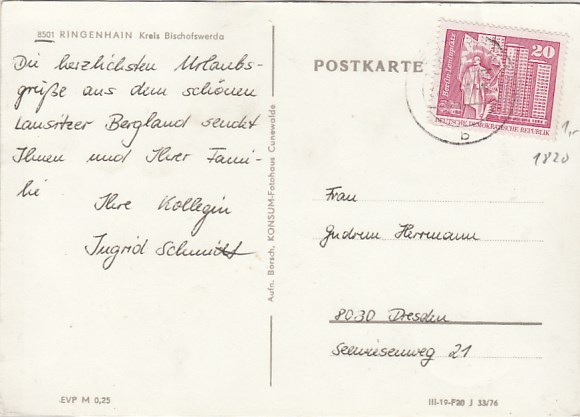 8501 RINGENHAIN Kreis Bischofswerda
Die herzlichsten Urlaubs-
grüße aus dem schönen
Lausitzer Bergland sendet
Ihnen und Ihrer Fami-
lie
Ihre Kollegin
Ingrid Schmidt
EVP M 0,25
Aufn. Borsch, KONSUM-Fotohaus Cunewalde
POSTKARTE
20
Berlin-Leninplatz
DEUTSCHE DEMOKRATISCHE REPUBLIK
b
1,-
1820
Frau
Gudrun Herrmann
8030 Dresden
Seewiesenweg 21
III-19-F20 J 33/76